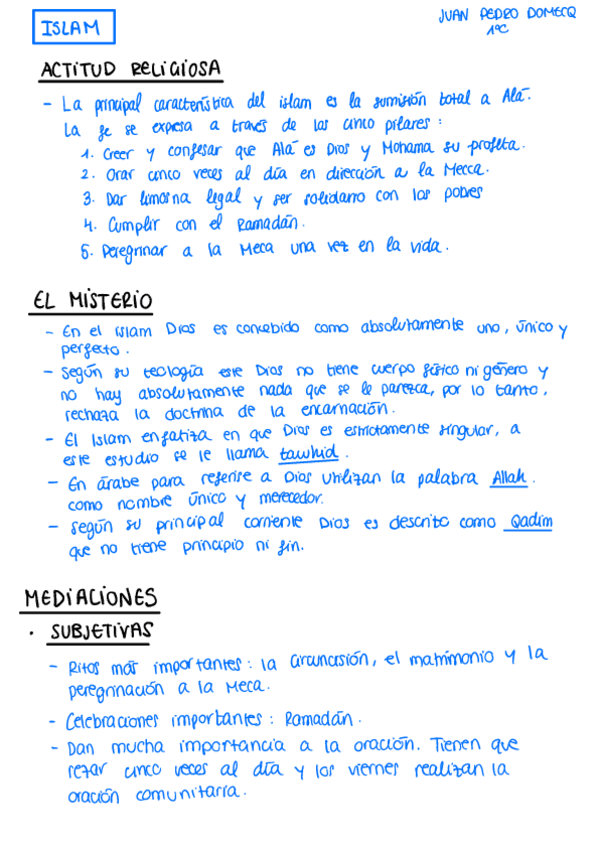 ISLAM
JUAN PEDRO DOMECQ
1ºC
ACTITUD RELIGIOSA
- La principal característica del islam es la sumisión total a Alá.
La fe se expresa a través de los cinco pilares:
1. Creer y confesar que Alá es Dios y Mohama su profeta.
2. Orar cinco veces al día en dirección a la Mecca.
3. Dar limosna legal y ser solidario con los pobres
4. Cumplir con el Ramadán.
5. Peregrinar a la Meca una vez en la vida.
EL MISTERIO
- En el islam Dios es concebido como absolutamente uno, único y
perfecto.
- Según su teología este Dios no tiene cuerpo físico ni género y
no hay absolutamente nada que se le parezca, por lo tanto,
rechaza la doctrina de la encarnación.
- El Islam enfatiza en que Dios es estrictamente singular, a
este estudio se le llama tawhid.
- En árabe para referirse a Dios utilizan la palabra Allah.
como nombre único y merecedor.
- Según su principal corriente Dios es descrito como Qadim
que no tiene principio ni fin.
MEDIACIONES
· SUBJETIVAS
- Ritos más importantes: la circuncisión, el matrimonio y la
peregrinación a la Meca.
- Celebraciones importantes: Ramadán.
- Dan mucha importancia a la oración. Tienen que
rezar cinco veces al día y los viernes realizan la
oración comunitaria.